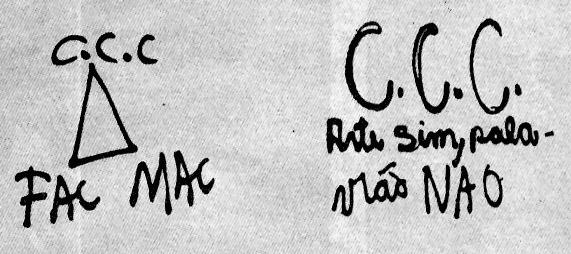 C.C.C
FAC MAC
C.C.C.
Arte sim, pala-
vrão NÃO